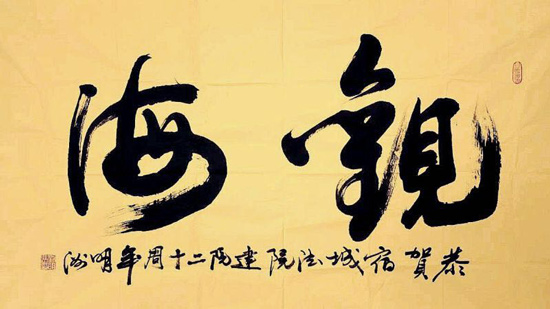 觀海
恭賀宿城法院建院二十周年明洲